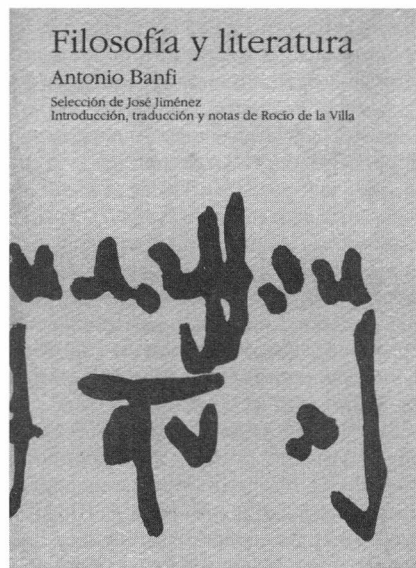 Filosofía y literatura
Antonio Banfi
Selección de José Jiménez
Introducción, traducción y notas de Rocío de la Villa